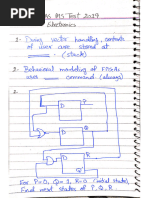 MS Test 2024
Electronics
1- During vector handling, contents
of user are stored at
- (stack)
2- Behavioral modeling of FPGAs
uses command (always)
2.
D
P
D
Q
D
R
For P=0, Q=1, R=0 (initial state),
Find next states of P, Q, R.